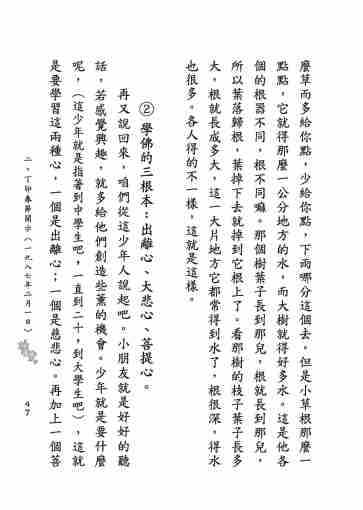 麼草而多給你點，少給你點，下雨哪分這個去。但是小草根那麼一
點點，它就得那麼一公分地方的水，而大樹就得好多水。這是他各
個的根器不同，根不同嘛。那個樹葉子長到那兒，根就長到那兒，
所以葉落歸根，葉掉下去就掉到它根上了。看那樹的枝子葉子長多
大，根就長成多大，這一大片地方它都常得到水了，根很深，得水
也很多。各人得的不一樣，這就是這樣。
② 學佛的三根本：出離心、大悲心、菩提心。
再又說回來，咱們從這少年人說起吧。小朋友就是好好的聽
話，若感覺興趣，就多給他們創造些薰的機會。少年就是要什麼
呢，（這少年就是指著到中學生吧，一直到二十，到大學生吧），這就
是要學習這兩種心，一個是出離心；一個是慈悲心。再加上一個菩
二、丁卯春節開示（一九八七年二月一日）
47